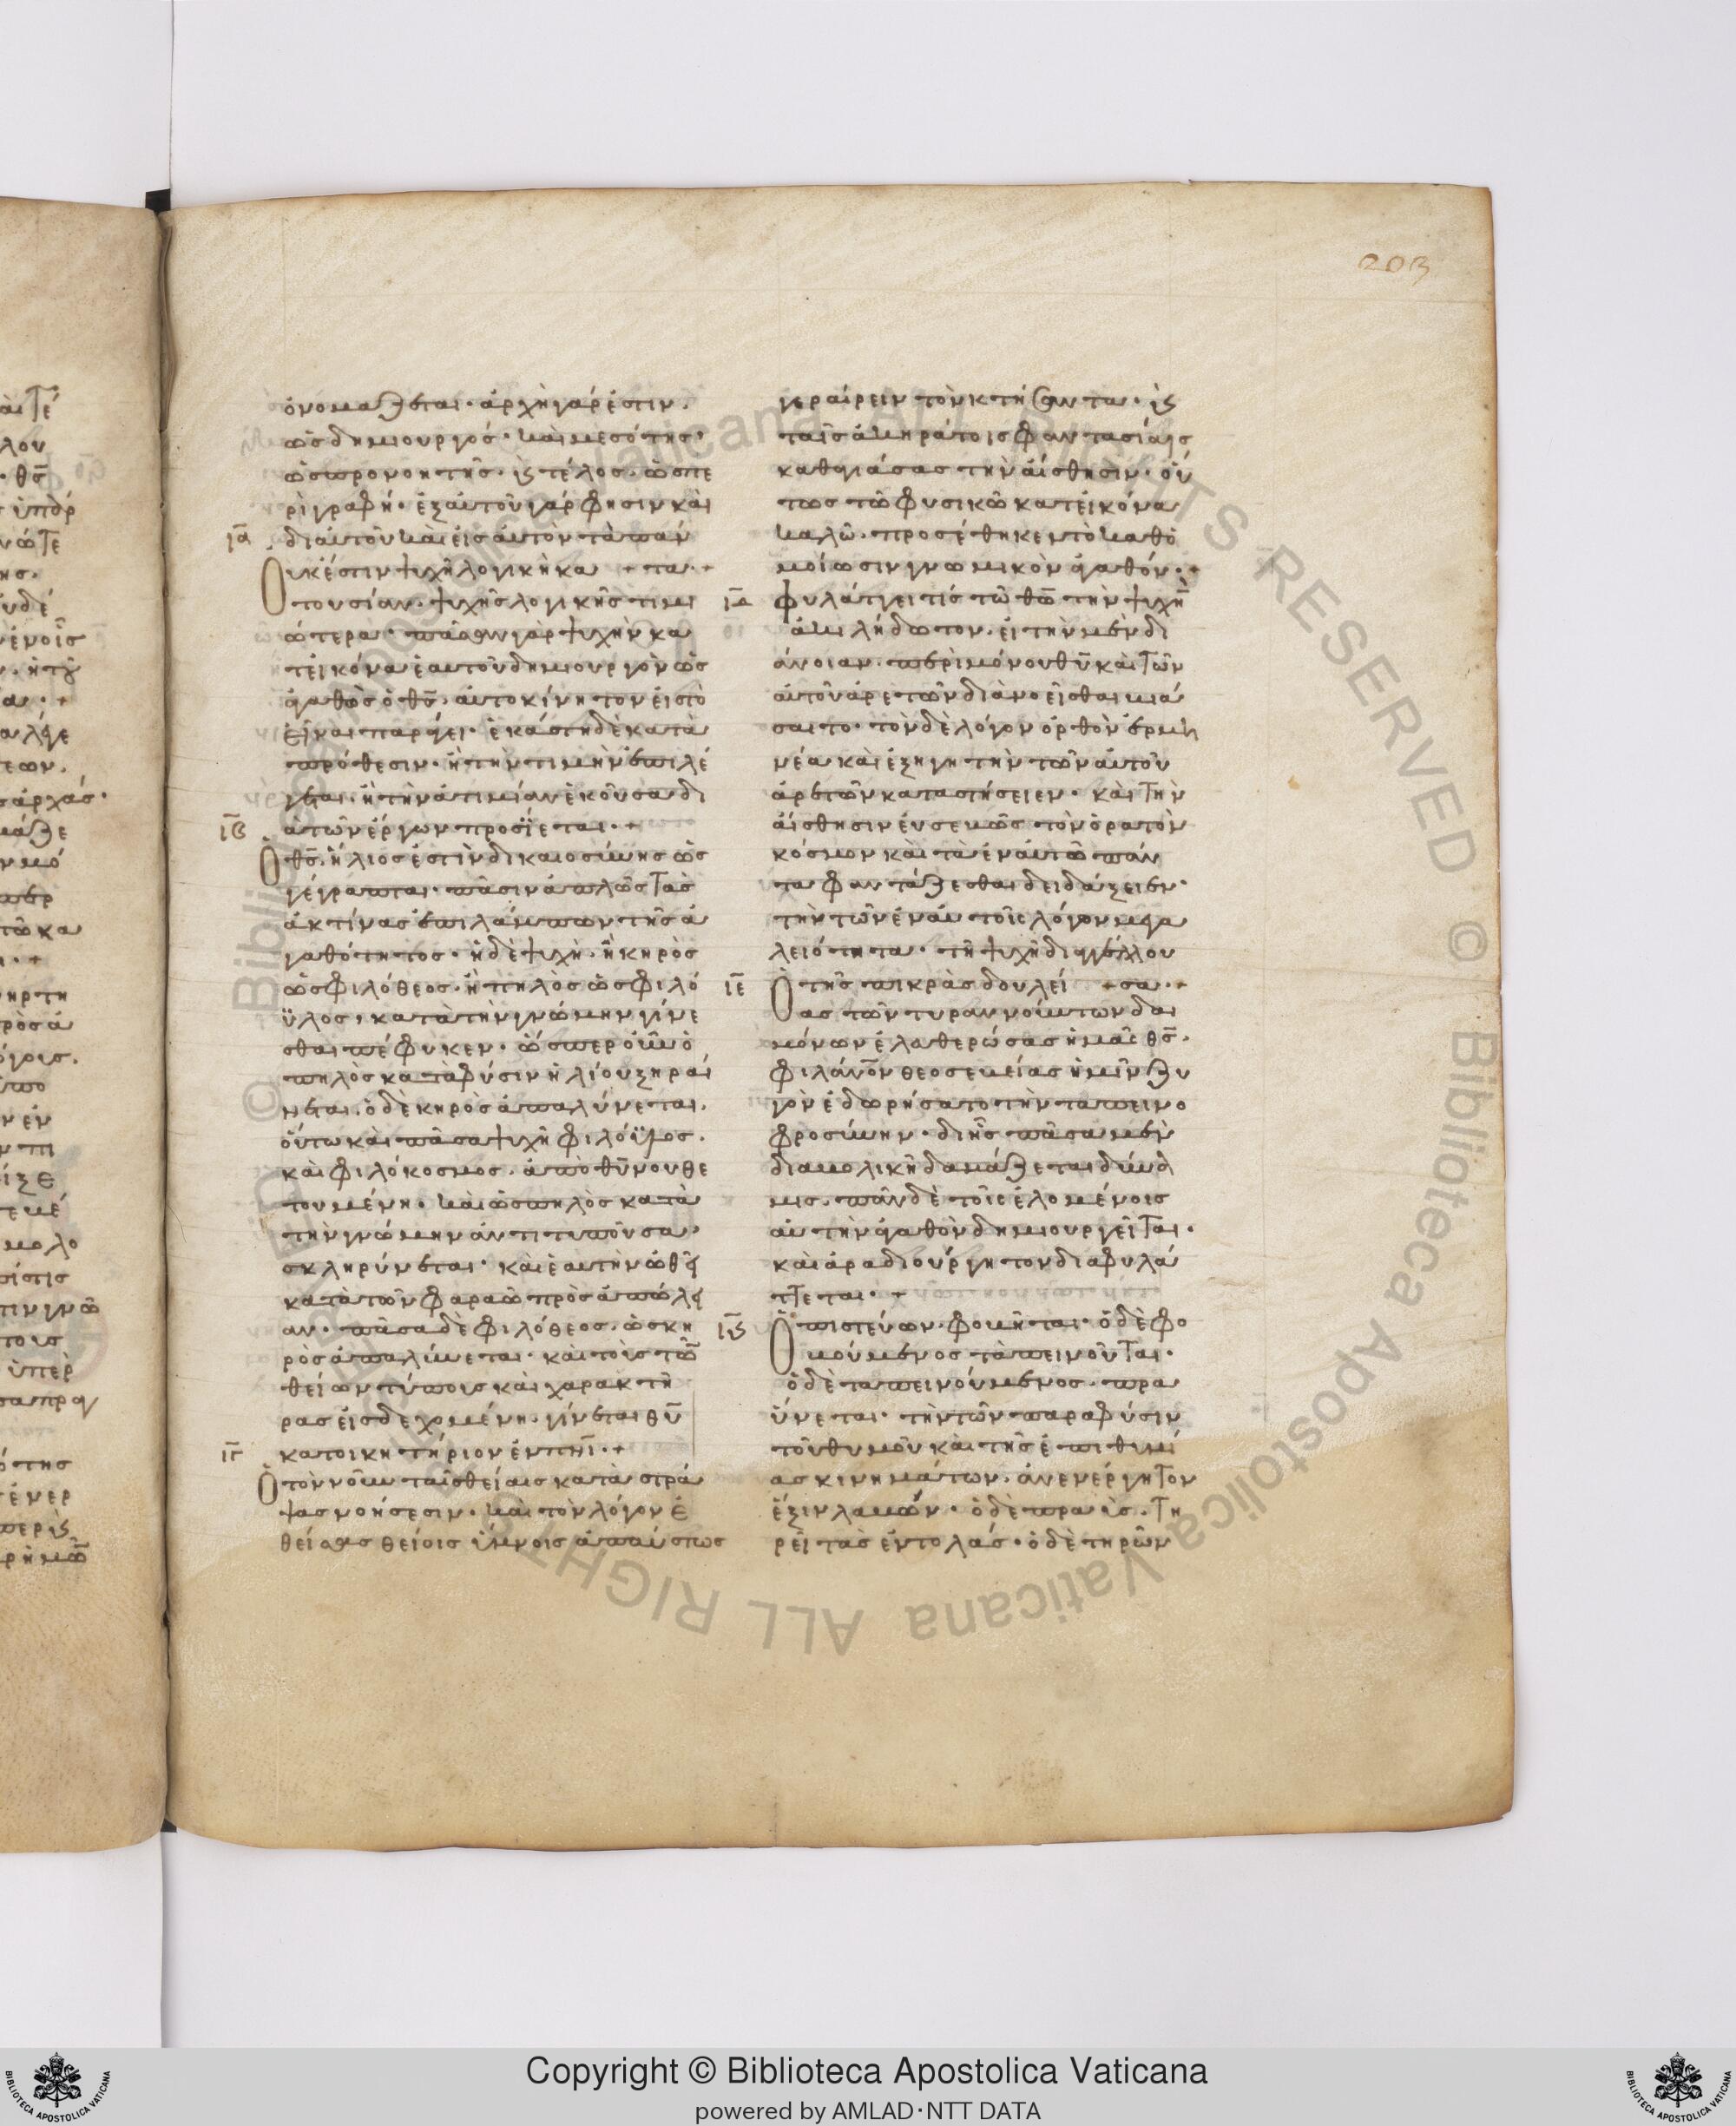 203
ὀνομάζεται· ἀρχὴ γάρ ἐστιν,
ὡς δημιουργός· καὶ μεσότης,
ὡς προνοητῆς· κ τέλος, ὡς πε
ριγραφή· ἐξ αὐτοῦ γάρ φησιν καὶ
ια δι αὐτοῦ καὶ εἰς αὐτὸν τὰ πάν
Οὐκ ἔστιν ψυχὴ λογικὴ κα + τα· +
τουσίαν, ψυχῆς λογικῆς τιμι
ωτέρα· πάσαν γὰρ ψυχὴν κα
τεικόνα ἑαυτοῦ δημιουργὸν ὡς
ἀγαθὸς ὁ θς, αὐτοκίνητον εἰς τὸ
εἶναι παράγει· ἑκάστη δὲ κατὰ
πρόθεσιν· ἢ τὴν τιμὴν ἐπιλέ
γεται, ἢ τὴν ἀτιμίαν ἑκοῦσα δι
ιβ ὰ τῶν ἔργων προσίεται· +
Ὁ θς, ἥλιος ἐστὶν δικαιοσύνης ὡς
γέγραπται· πᾶσιν ἁπλῶς τὰς
ἀκτίνας ἐπιλάμπων τῆς ἀ
γαθότητος· ἡ δὲ ψυχὴ, ἢ κηρὸς
ὡς φιλόθεος, ἢ πηλὸς ὡς φιλό
ϋλος, κατὰ τὴν γνώμην γίνε
σθαι πέφυκεν· ὥσπερ οὖν ὁ
πηλὸς κατα φύσιν ἡλίου ξηραί
νεται, ὁ δὲ κηρὸς ἀπαλύνεται,
οὕτω καὶ πᾶσα ψυχὴ φιλόϋλος,
καὶ φιλόκοσμος, ἀπὸ θῦ νουθε
τουμένη, καὶ ὡς πηλὸς κατὰ
τὴν γνώμην ἀντιτυποῦσα,
σκληρύνεται· καὶ ἑαυτὴν ὠθεῖ
κατὰ τὸν φαραὼ πρὸς ἀπώλει
αν· πᾶσα δὲ φιλόθεος, ὡς κη
ρὸς ἀπαλύνεται· καὶ τοὺς τῶν
θείων τύπους καὶ χαρακτῆ
ρας εἰσδεχομένη, γίνεται θῦ
ιγ κατοικητήριον ἐν πνι· +
Ὁ τὸν νοῦν ταῖς θείαις καταστρά
ψας νοήσεσιν· καὶ τὸν λόγον ἐ
θείσας θείοις ὕμνοις ἀπαύστως
γεραίρειν τὸν κτήσαντα· κ
ταῖς ἀκηράτοις φαντασίαις
καθαγιάσας τὴν αἴσθησιν· οὗ
τος τῶ φυσικῶ κατεικόνα
καλῶ, προσέθηκεν τὸ καθὁ
μοίωσιν γνωμικὸν ἀγαθόν· +
ιδ Φυλάττει τίς τῶ θῶ τὴν ψυχὴν
ἀκηλήδωτον, εἰ τὴν μὲν δι
άνοιαν, περὶ μόνου θῦ καὶ τῶν
αὐτοῦ ἀρετῶν διανοεῖσθαι βιά
σαιτο· τὸν δὲ λόγον ὀρθὸν ἑρμη
νέα καὶ ἐξηγητὴν τῶν αὐτοῦ
ἀρετῶν καταστήσειεν· καὶ τὴν
αἴσθησιν εὐσεβῶς τὸν ὁρατὸν
κόσμον καὶ τὰ ἐν αὐτῶ πάν
τα φαντάζεσθαι δειδάξειεν·
τὴν τῶν ἐν αὐτοῖς λόγον μεγα
λειότητα· τῆ ψυχῆ διαγγέλλου
ιε Ὁ τῆς πικρὰς δουλεί + σα· +
ας τῶν τυραννούντων δαι
μόνων ἐλευθερώσας ἡμᾶς θς,
φιλάνον θεοσεβείας ἡμῖν ζυ
γὸν ἐδωρήσατο τὴν ταπεινο
φροσύνην· δι ἧς πᾶσα μὲν
διαβολικὴ δαμάζεται δύνα
μις, πᾶν δὲ τοῖς ἑλομένοις
αὐτὴν ἀγαθὸν δημιουργεῖται·
καὶ ἀραδιούργητον διαφυλά
ττεται· +
ις Ὁ πιστεύων, φοβῆται· ὁ δὲ φο
βούμενος ταπεινοῦται·
ὁ δὲ ταπεινούμενος, πρα
ύνεται· τὴν τῶν παραφύσιν
τοῦ θυμοῦ καὶ τῆς ἐπιθυμί
ας κινημάτων, ἀνενέργητον
ἕξιν λαβών· ὁ δὲ πραὺς, τη
ρεῖ τὰς ἐντολάς· ὁ δὲ τηρῶν
Copyright © Biblioteca Apostolica Vaticana
powered by AMLAD·NTT DATA